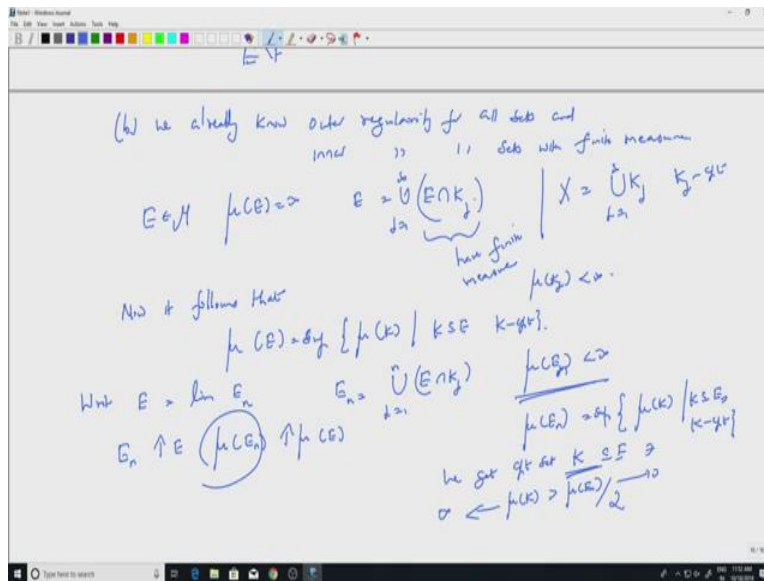 Note1 - Windows Journal
File Edit View Insert Actions Tools Help
E \ F
(b) We already know outer regularity for all sets and
inner )) ,, sets with finite measure
E ∈ M μ(E) = ∞ E = ∪_{j=1}^{∞} (E ∩ K_j) | X = ∪_{j=1}^{∞} K_j K_j - cpt
have finite
measure
μ(K_j) < ∞.
Now it follows that
μ(E) = Sup { μ(K) | K ⊆ E K-cpt}.
Write E = lim E_n E_n = ∪_{j=1}^{n} (E ∩ K_j) μ(E_n) < ∞
E_n ↑ E μ(E_n) ↑ μ(E) μ(E_n) = Sup { μ(K) | K ⊆ E_n K-cpt}
We get cpt set K ⊆ E ∋
∞ ← μ(K) > μ(E_n)/2 → ∞
Type here to search